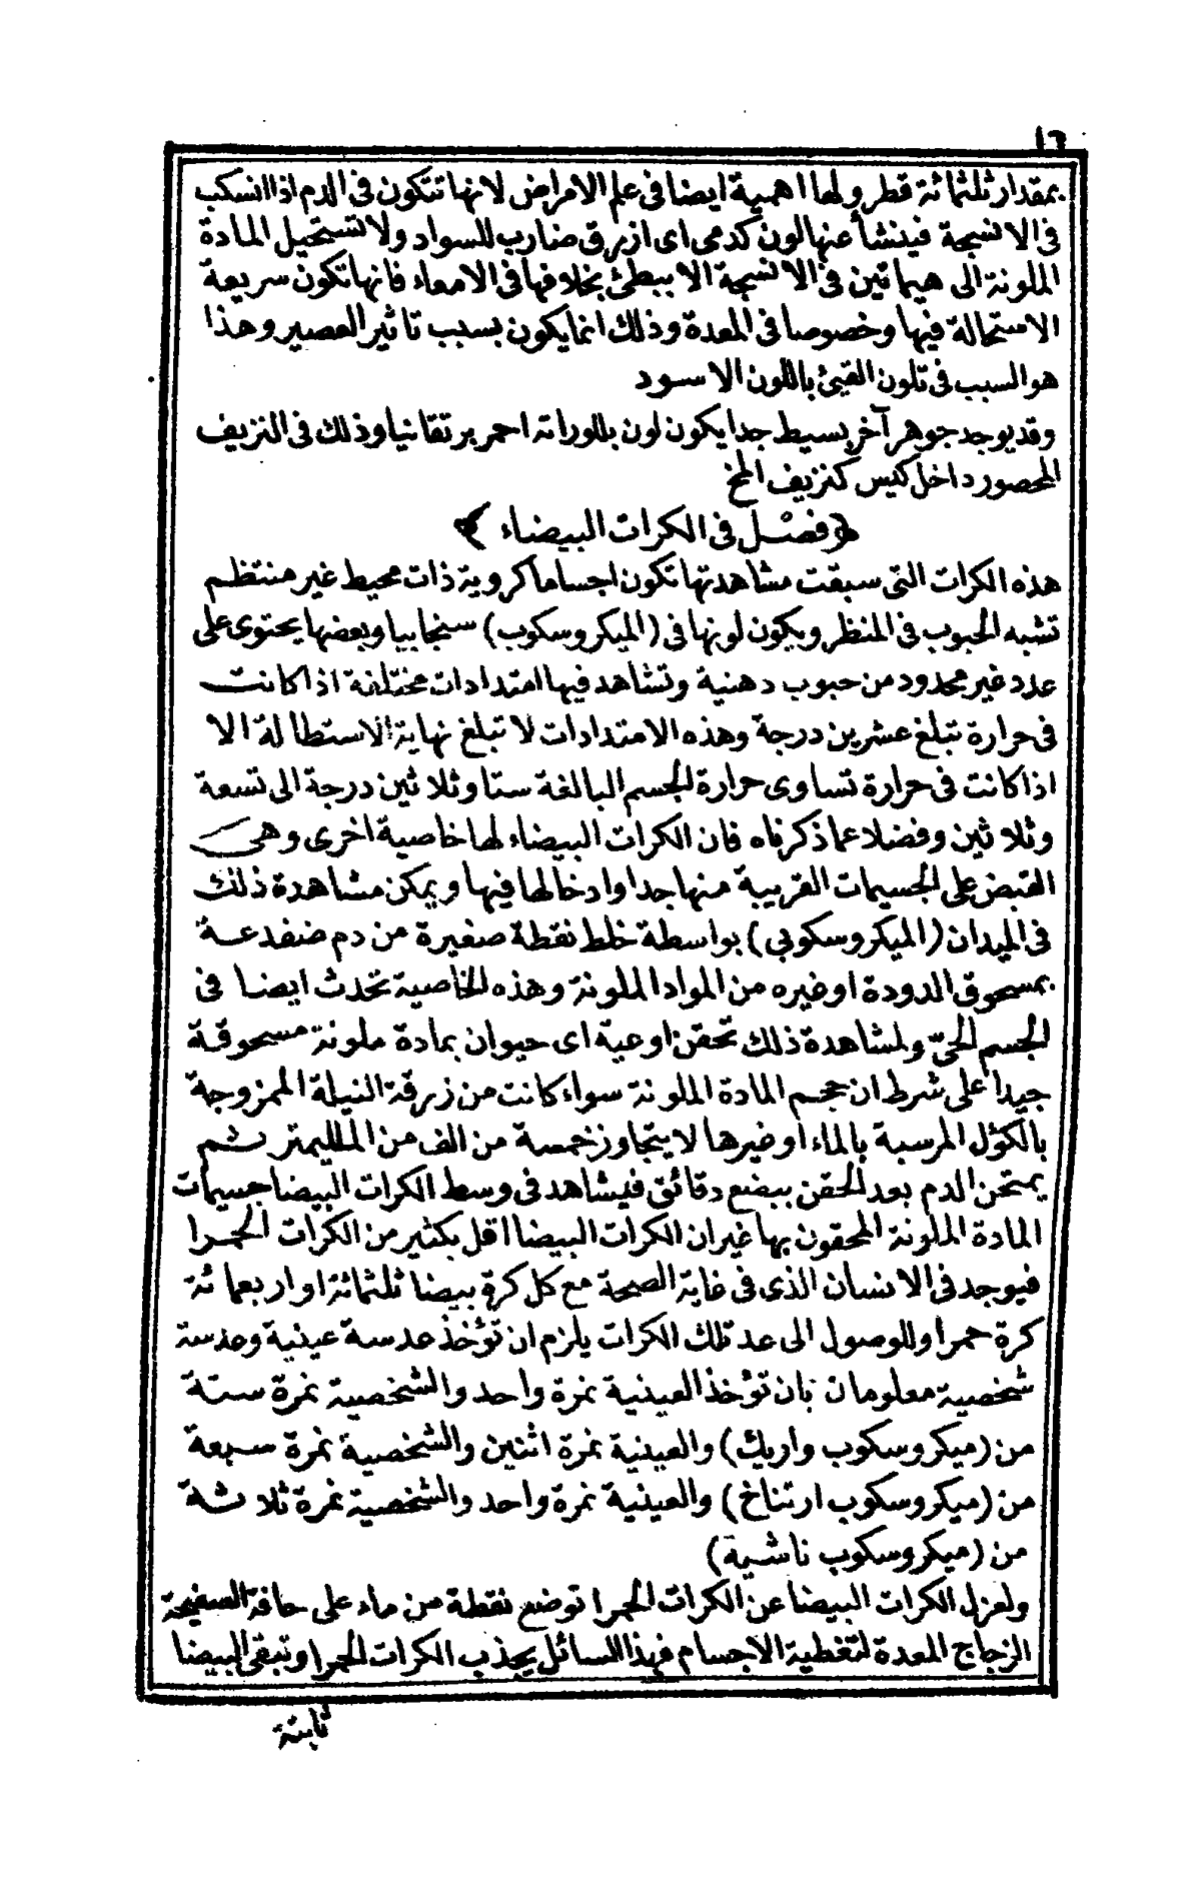 ١٦
بمقدار ثلثمائة قطر ولها اهمية ايضا فى علم الامراض لانها تتكون فى الدم اذا انسكب
فى الانسجة فينشأ عنها لون كدمى اى ازرق ضارب للسواد ولا تستحيل المادة
الملونة الى هيماتين فى الانسجة الا ببطئ بخلافها فى الامعاء فانها تكون سريعة
الاستحالة فيها وخصوصا فى المعدة وذلك انما يكون بسبب تاثير العصير وهذا
هو السبب فى تلون القيئ باللون الاسود
وقد يوجد جوهر آخر بسيط جدا يكون لون بللوراته احمر برتقانيا وذلك فى النزيف
المحصور داخل كيس كنزيف المخ
﴿ فصل فى الكرات البيضاء ﴾
هذه الكرات التى سبقت مشاهدتها تكون اجساما كروية ذات محيط غير منتظم
تشبه الحبوب فى المنظر ويكون لونها فى (الميكروسكوب) سنجابيا وبعضها يحتوى على
عدد غير محدود من حبوب دهنية وتشاهد فيها امتدادات مختلفة اذا كانت
فى حرارة تبلغ عشرين درجة وهذه الامتدادات لا تبلغ نهاية الاستطالة الا
اذا كانت فى حرارة تساوى حرارة الجسم البالغة ستا وثلاثين درجة الى تسعة
وثلاثين وفضلا عما ذكرناه فان الكرات البيضاء لها خاصية اخرى وهى
القبض على الجسيمات القريبة منها جدا وادخالها فيها ويمكن مشاهدة ذلك
فى الميدان (الميكروسكوبى) بواسطة خلط نقطة صغيرة من دم ضفدعة
بمسحوق الدودة او غيره من المواد الملونة وهذه الخاصية تحدث ايضا فى
الجسم الحىّ ولمشاهدة ذلك تحقن اوعية اى حيوان بمادة ملونة مسحوقة
جيدا على شرط ان حجم المادة الملونة سواء كانت من زرقة النيلة الممزوجة
بالكؤل المرسبة بالماء او غيرها لا يتجاوز خمسة من الف من المللیمتر ثم
يمتحن الدم بعد الحقن ببضع دقائق فيشاهد فى وسط الكرات البيضا جسيمات
المادة الملونة المحقون بها غير ان الكرات البيضا اقل بكثير من الكرات الحمرا
فيوجد فى الانسان الذى فى غاية الصحة مع كل كرة بيضا ثلثمائة او اربعمائة
كرة حمرا وللوصول الى عد تلك الكرات يلزم ان تؤخذ عدسة عينية وعدسة
شخصية معلومان بان تؤخذ العينية نمرة واحد والشخصية نمرة ستة
من (ميكروسكوب واريك) والعينية نمرة اثنين والشخصية نمرة سبعة
من (ميكروسكوب ارتناخ) والعينية نمرة واحد والشخصية نمرة ثلاثة
من (ميكروسكوب ناشية)
ولعزل الكرات البيضا عن الكرات الحمرا توضع نقطة من ماء على حافة الصفيحة
الزجاج المعدة لتغطية الاجسام فهذا السائل يجذب الكرات الحمرا وتبقى البيضا
ثابتة